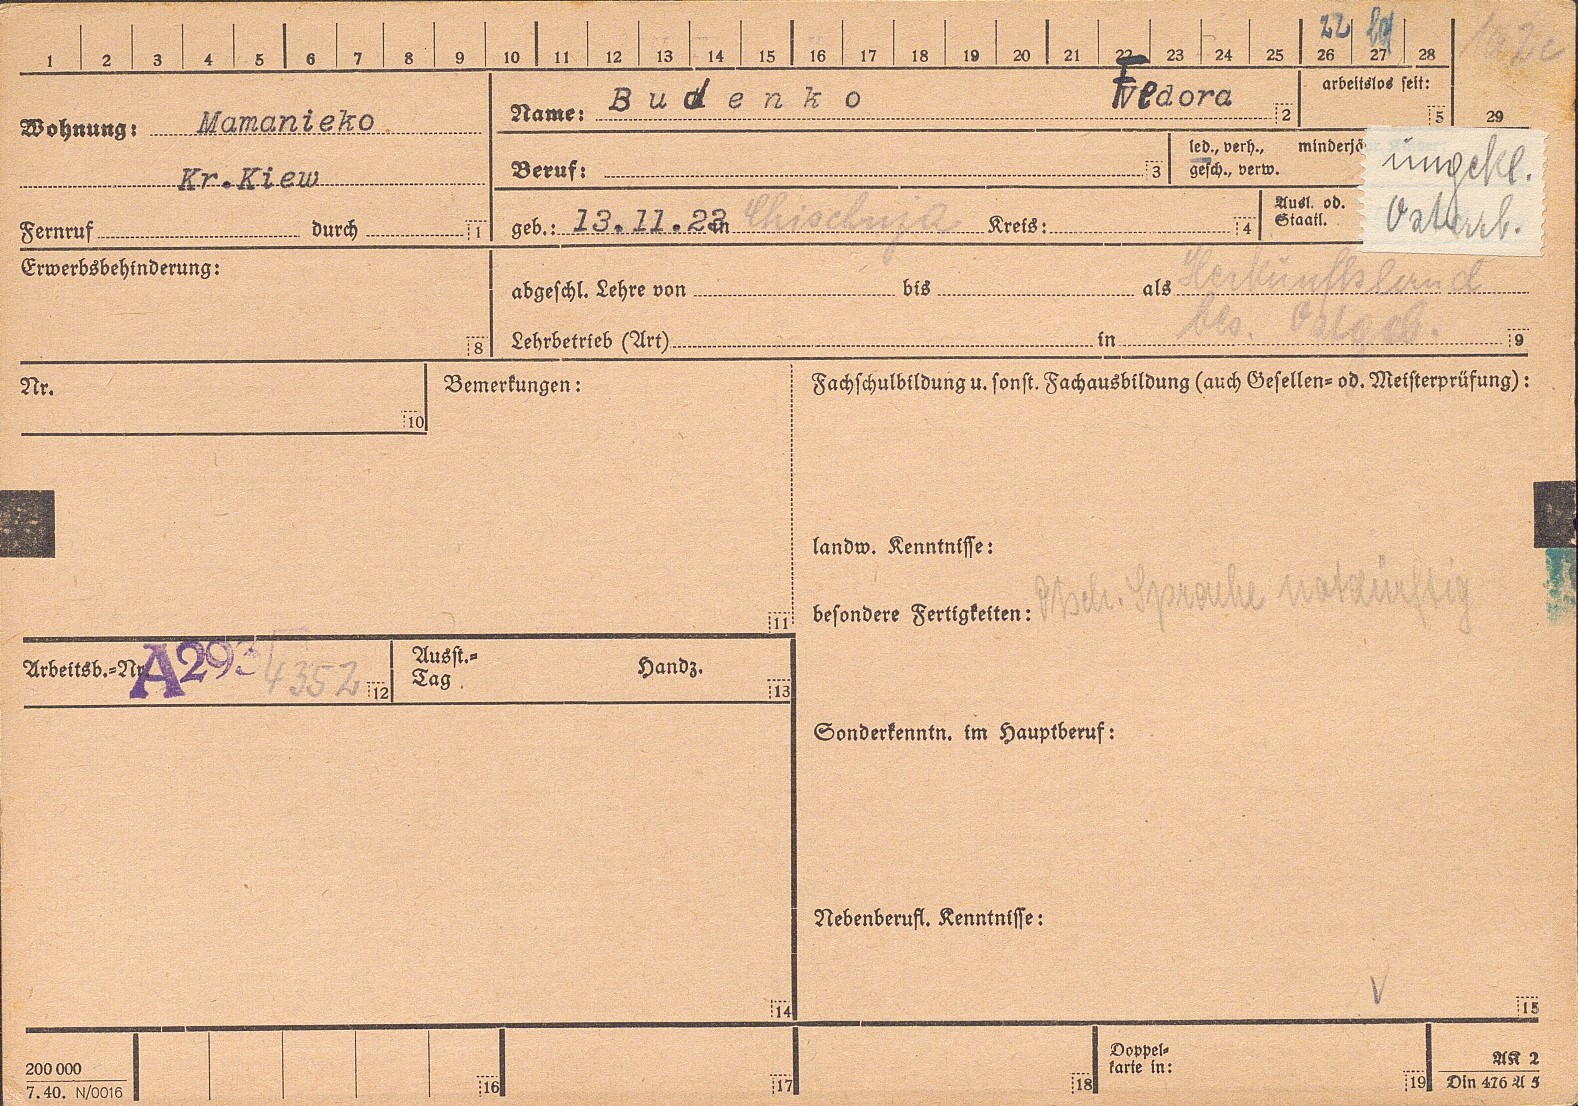 1 2 3 4 5 6 7 8 9 10 11 12 13 14 15 16 17 18 19 20 21 22 23 24 25 26 27 28
22
Wohnung: Mamanieko
Kr.Kiew
Fernruf durch 1
Name: Budenko Fedora 2
arbeitslos seit: 5
29
Beruf: 3
led., verh., minderjä
gesch., verw.
ungekl.
Ostarb.
geb.: 13.11.23 in Chischnja Kreis: 4
Ausl. od.
Staatl.
Erwerbsbehinderung:
8
Herkunftsland
abgeschl. Lehre von bis als
bes. Ostgeb.
Lehrbetrieb (Art) in 9
Nr.
10
Bemerkungen:
11
Fachschulbildung u. sonst. Fachausbildung (auch Gesellen= od. Meisterprüfung):
landw. Kenntnisse:
besondere Fertigkeiten: Dtsch. Sprache notdürftig
Arbeitsb.=Nr. A293/4352 12
Ausst.=
Tag
Handz.
13
Sonderkenntn. im Hauptberuf:
Nebenberufl. Kenntnisse:
14
15
200 000
7.40. N/0016
16
17
18
Doppel=
karte in:
19
AK 2
Din 476 A 5